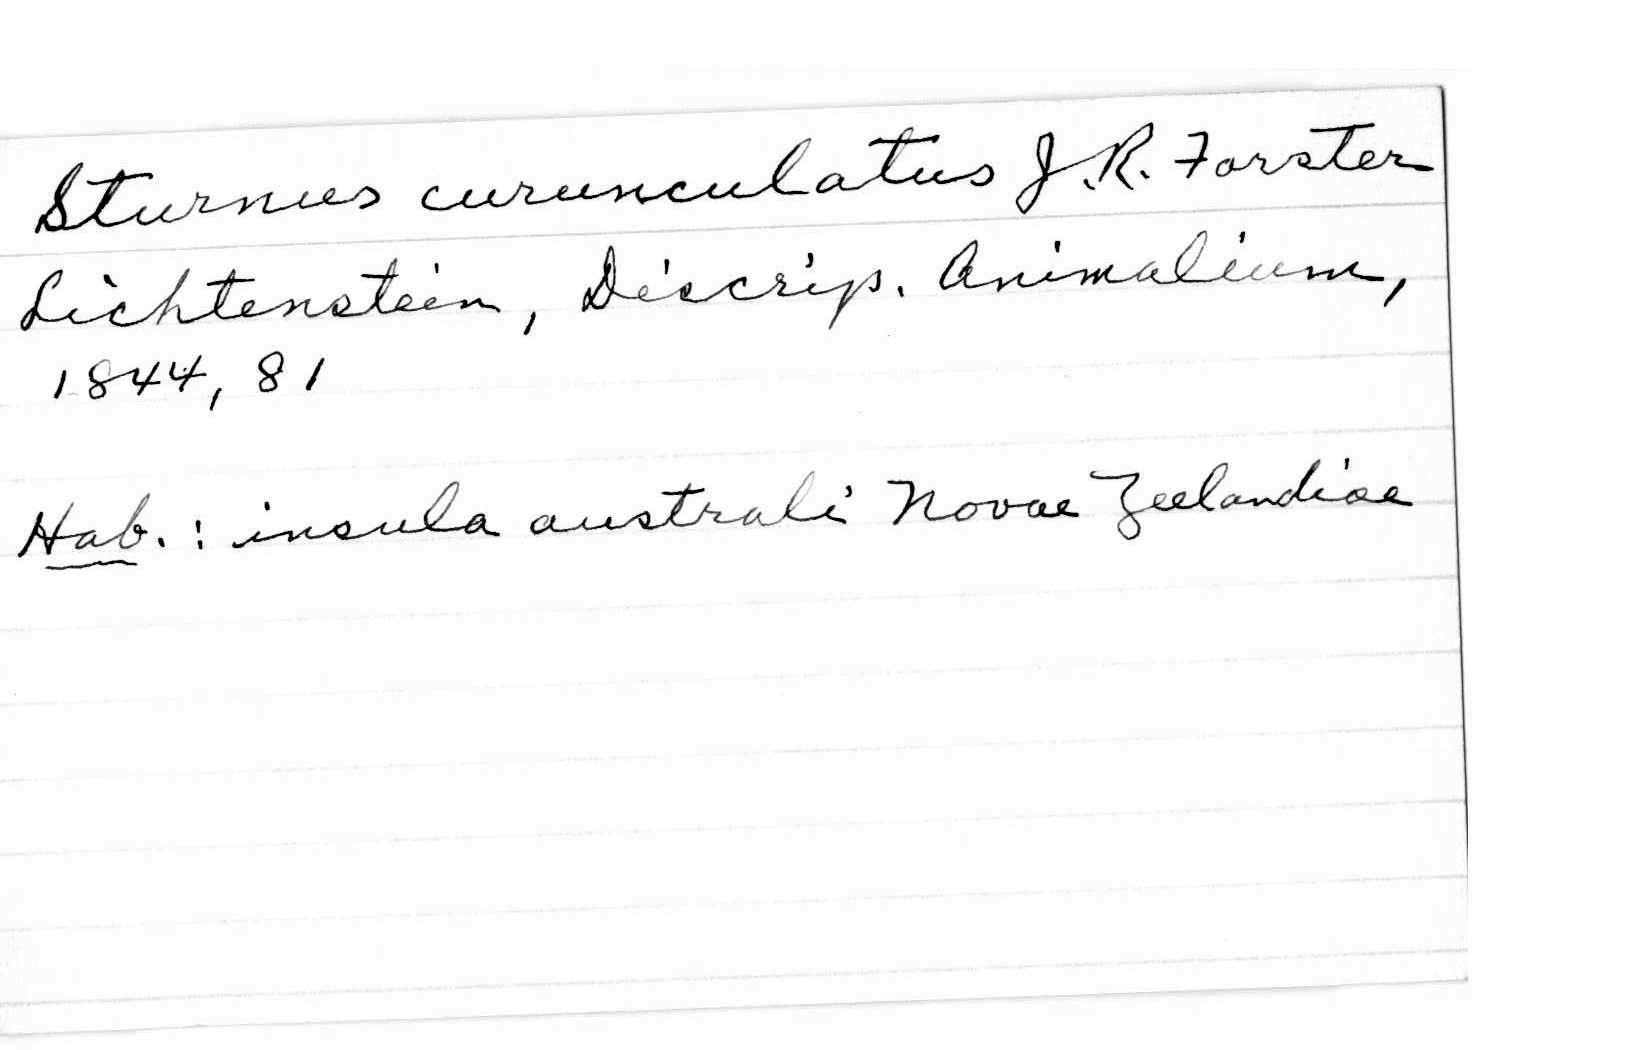 Sturnus curunculatus J.R. Forster
Lichtenstein, Discrip. Animalium,
1844, 81
Hab. : insula australi Novae Zeelandiae